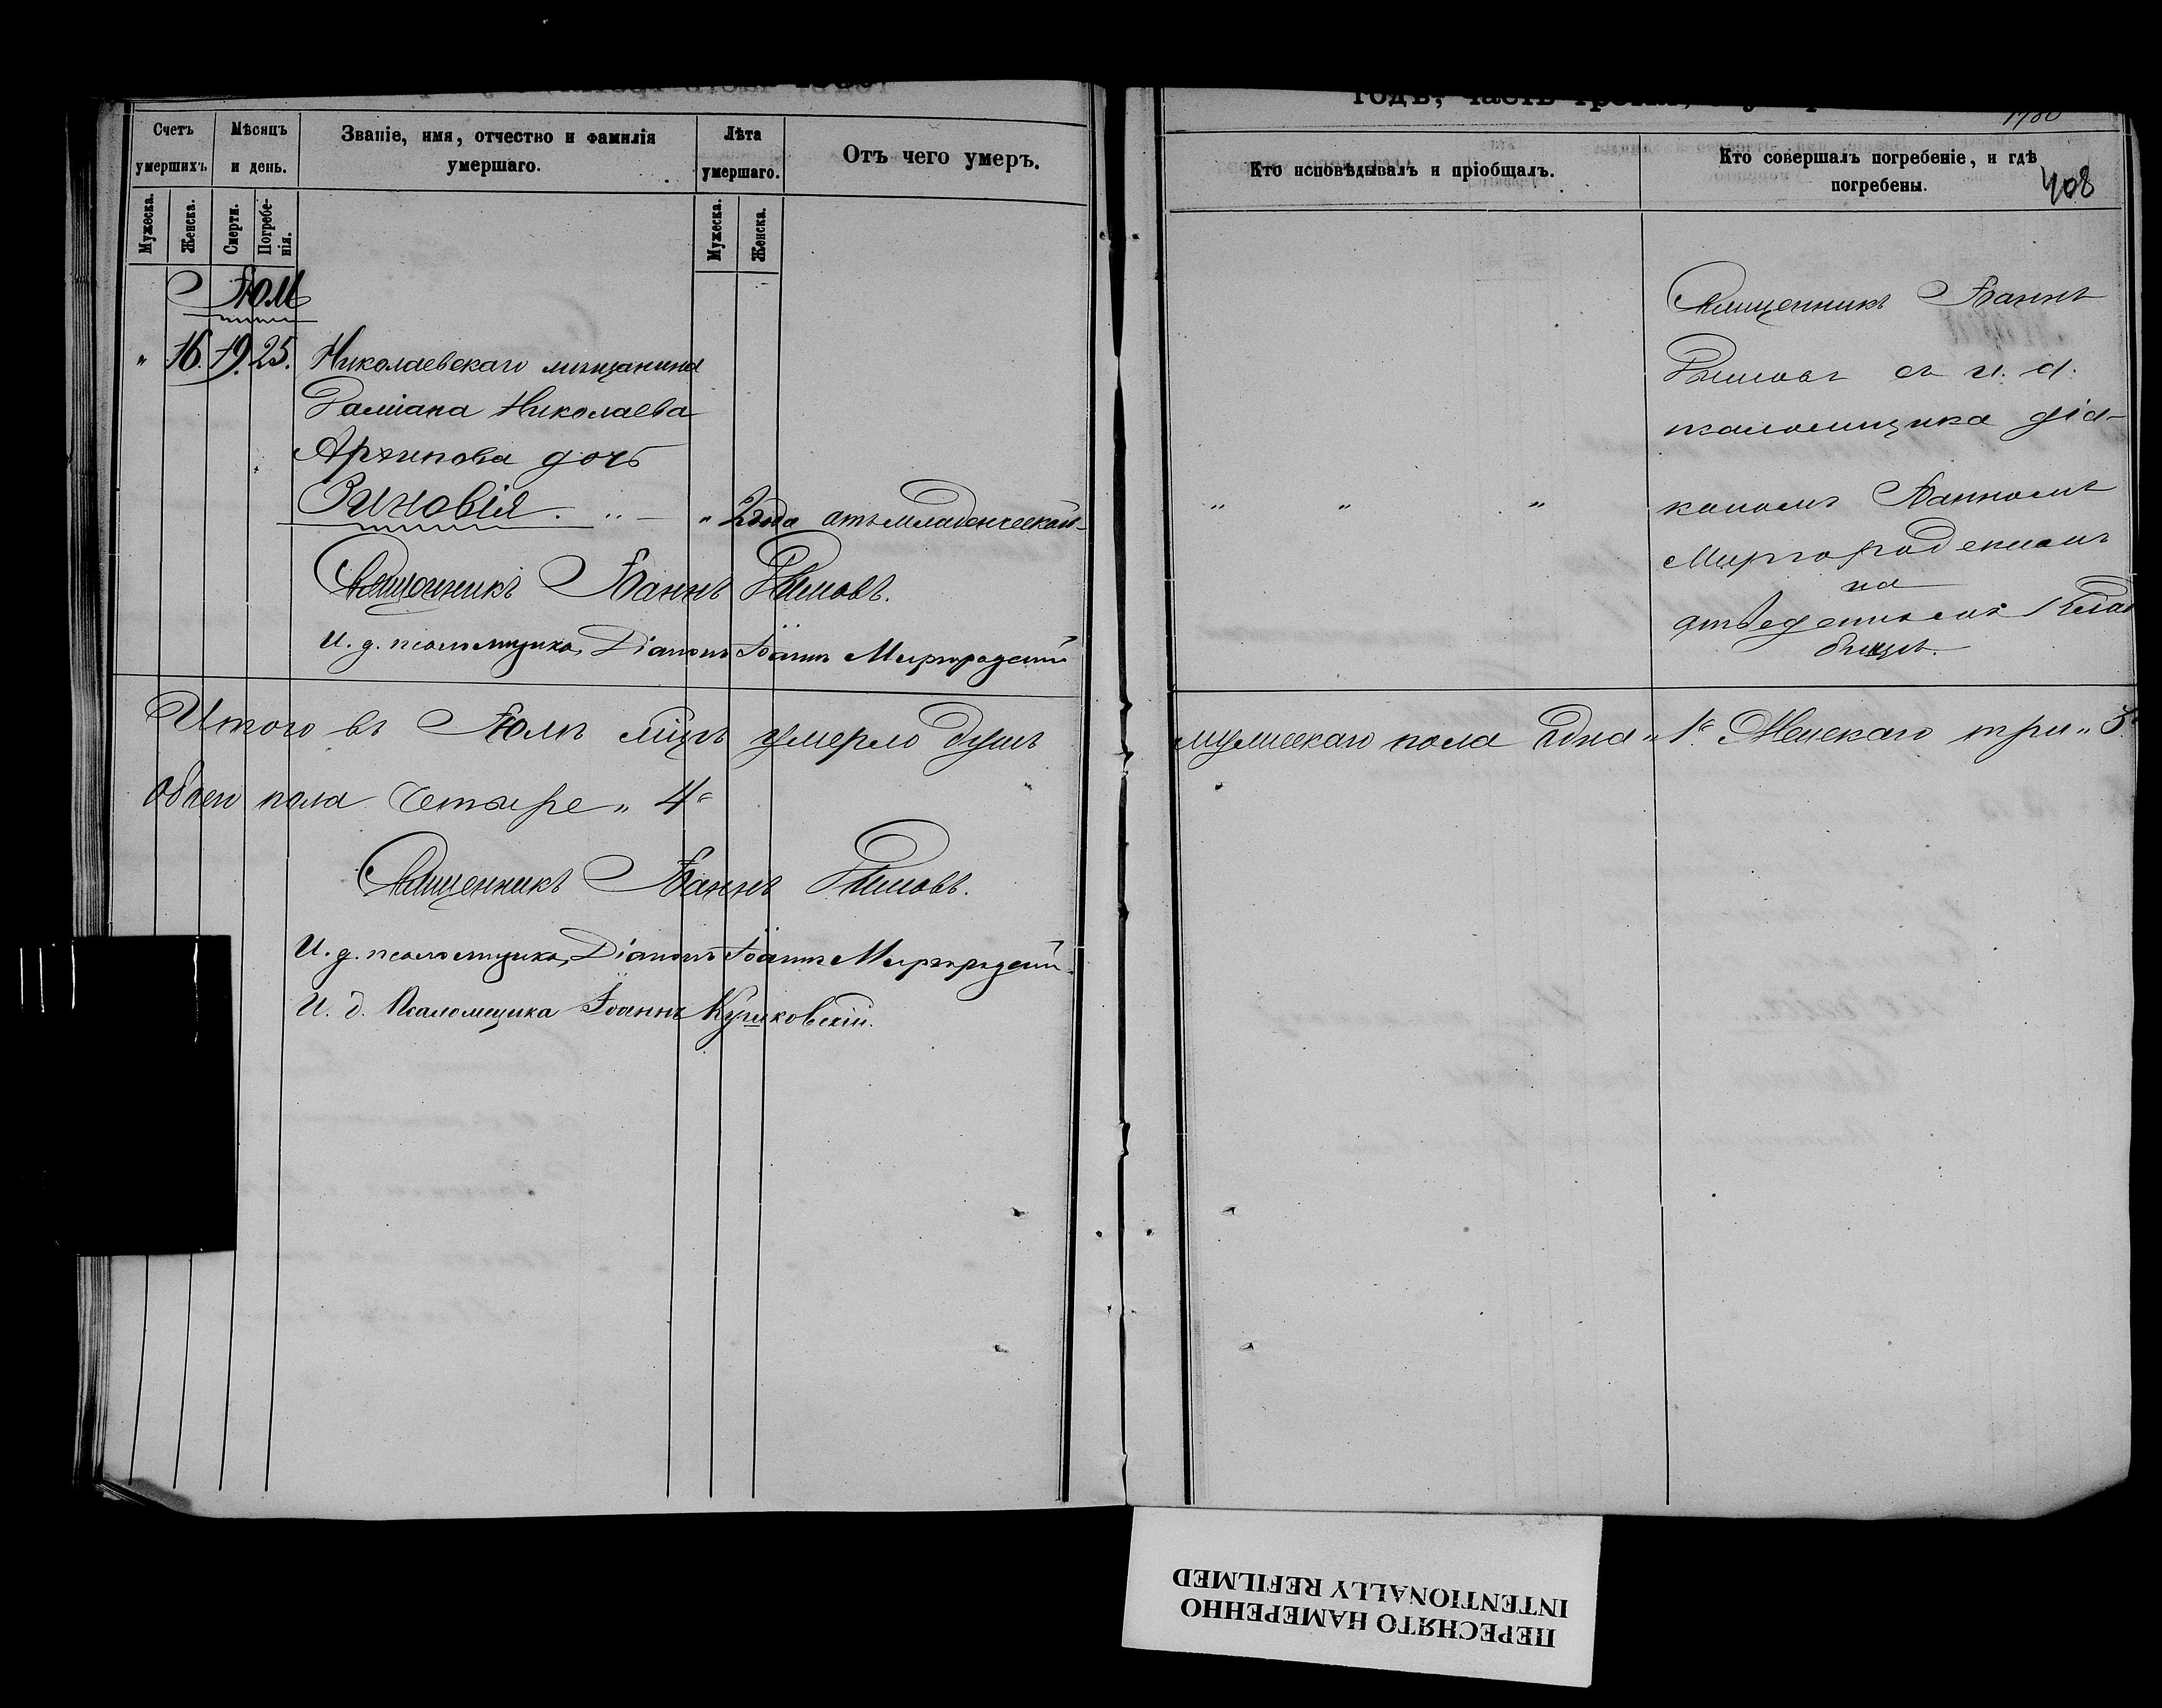 Счетъ умершихъ
Мѣсяцъ и день.
Званіе, имя, отчество и фамилія умершаго.
Лѣта умершаго.
Отъ чего умеръ.
Мужеска.
Женска.
Смерти.
Погребе-
нія.
Мужеска.
Женска.
Іюль
" 16. 19. 25. Николаевскаго мѣщанина
Даміана Николаева
Архипова дочь
Зиновія . " — " 2 года отъ младенческой
Священникъ Іоаннъ Рымовъ.
И. д. псаломщика, Діаконъ Іоаннъ Миргородскій
Итого въ Іюлѣ мѣцѣ умерло душъ
обоего пола четыре " 4"
Священникъ Іоаннъ Рымовъ.
И. д. псаломщика, Діаконъ Іоаннъ Миргородскій.
И. д. Псаломщика Іоаннъ Кушковскій.
годъ, часть
408
Кто исповѣдывалъ и пріобщалъ.
Кто совершалъ погребеніе, и гдѣ погребены.
" " "
Священникъ Іоаннъ
Рымовъ съ и. д.
псаломщика діа-
кономъ Іоанномъ
Миргородскимъ
на
отведенномъ клад
бищѣ.
мужескаго пола одна " 1" Женскаго три " 3"
ПЕРЕСНЯТО НАМЕРЕННО
INTENTIONALLY REFILMED